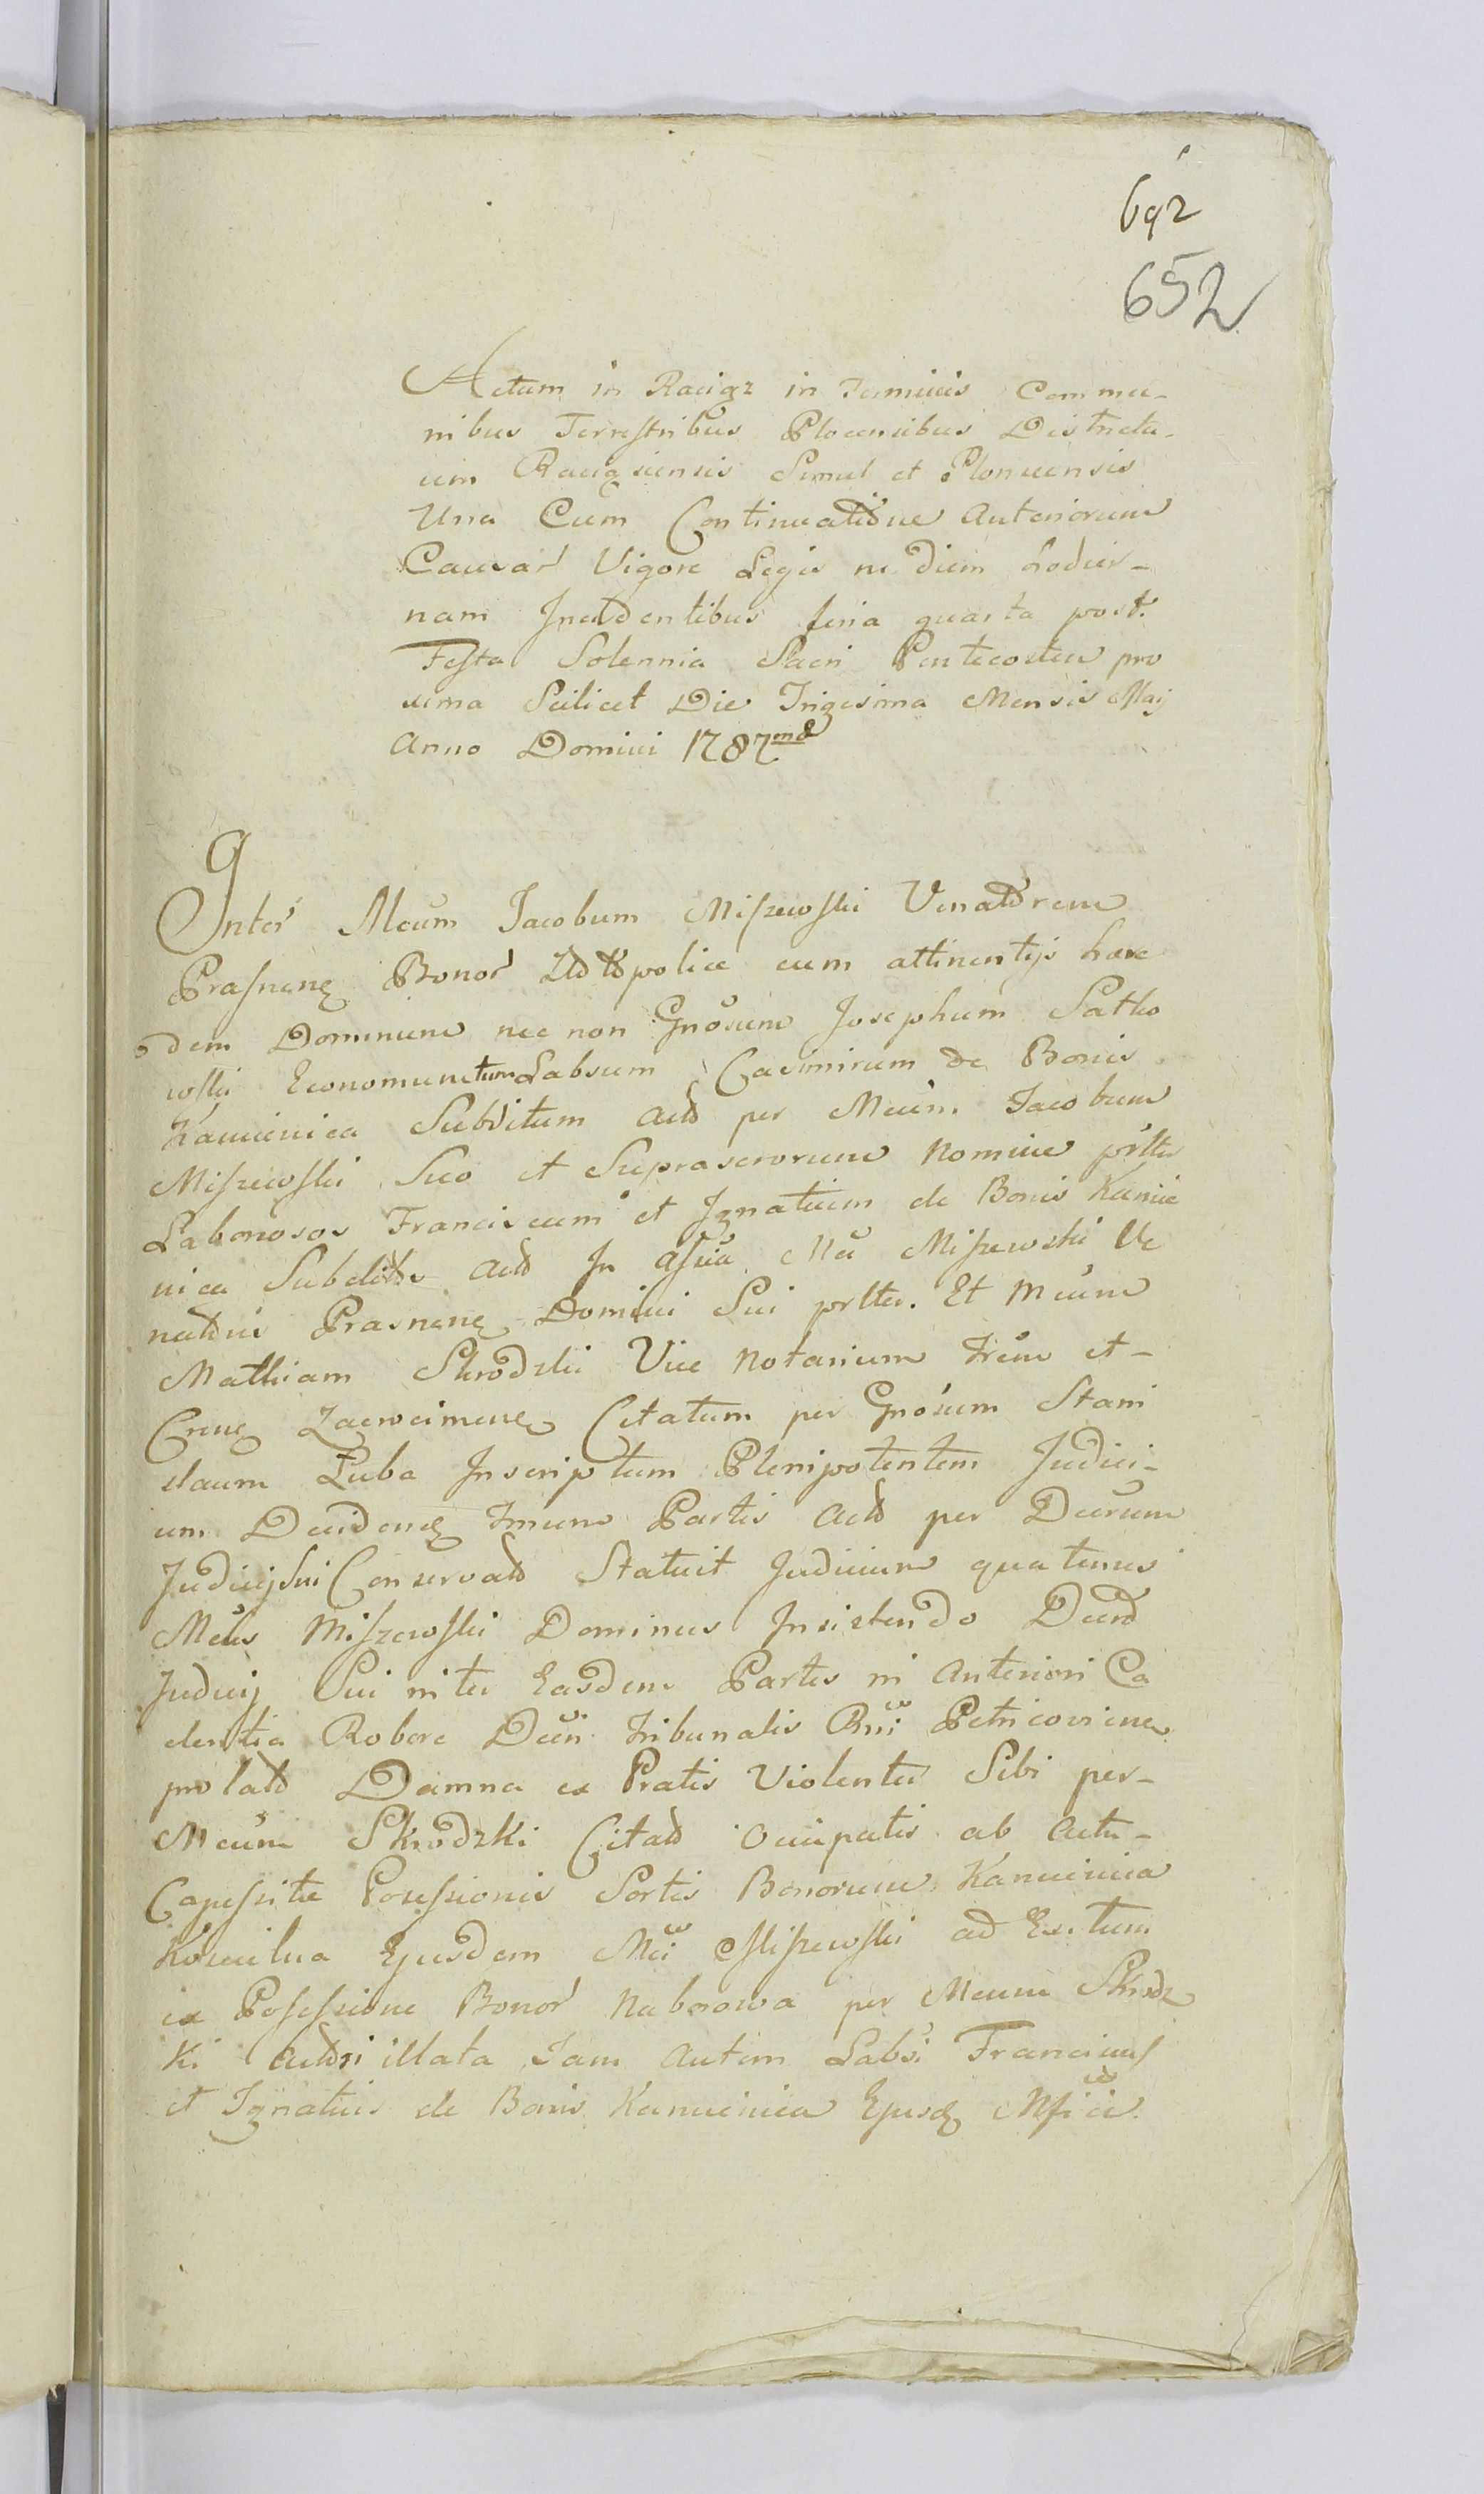 692
652
Actum in Raciąz in Terminis Commu-
nibus Terrestribus Plocensibus Districtu-
um Raciąsiensis Simul et Plonscensis
Una Cum Continuatõne Anteriorum
Causar Vigore Legis in diem hodier-
nam Incidentibus feria quarta post
Festa Solennia Sacri Pentecostes pro
xima Scilicet Die Trigesima Mensis Maij
Anno Domini 1787mo
Inter Mcum Jacobum Miszewski Venatorem
Prasnenę Bonor cum attinentijs hære
dem Dominum nec non Gnosum Josephum Patko
wski Economum tum Labsum Casimirum de Bonis
Kamienica Subditum Act per Mcum Jacobum
Miszewski Suo et Suprascrorum Nomine prlter
Laboriosos Franciscum et Ignatium de Bonis Kamie
nica Subditos Act In Assia Mci Miszewski Ve
natoris Prasnenę Domini Sui prlter. Et Mcum
Mathiam Skrodzki Vice Notarium Trem et-
Crenę Zacwcimenę Citatum per Gnosum Stani
slaum Luba Inscriptum Plenipotentem Judici-
um Decidenę Imum Partis Act per Decrum
Judicij Sui Conservat Statuit Judicium quatenus
Mcus Miszewski Dominus Insistendo Decro
Judicij Sui inter Easdem Partes in Anteriori Ca
dentia Robore Decri Tribunalis Rni Petricovienę
prolato Damna ex Pratis Violenter Sibi per-
Mcum Skrodzki Citat Occupatis ab Actu-
Capessitæ Possessionis Sortis Bonorum Kamienica
Ejusdem Mci Miszewski ad Exitum
ex Possessione Bonor Naborowa per Mcum Skrodz
ki Actori illata Jam Autem Labsi Franciscus
et Ignatius de Bonis Kamienica Ejusdę